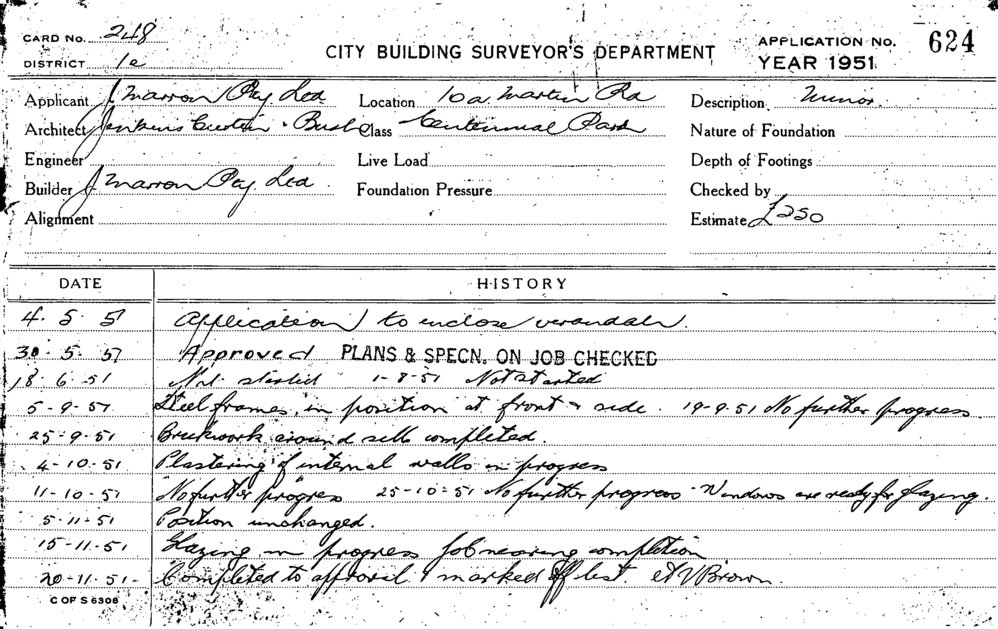 CARD No. 248
DISTRICT 1e
CITY BUILDING SURVEYOR'S DEPARTMENT
APPLICATION No. 624
YEAR 1951
Applicant J Marron Pty. Ltd Location 10a. Martin Rd Description Minor
Architect Jenkins Curtin & Bush Class Centennial Park Nature of Foundation
Engineer Live Load Depth of Footings
Builder J. Marron Pty. Ltd. Foundation Pressure Checked by
Alignment Estimate £250
DATE HISTORY
4. 5. 51 Application to enclose verandah.
30. 5. 51 Approved PLANS & SPECN. ON JOB CHECKED
18. 6. 51 Not started 1-8-51 Not started
5-9-51 Steel frames in position at front & side. 19-9.51 No further progress
25-9-51 Brickwork around sill completed.
4-10-51 Plastering of internal walls in progress
11-10-51 No further progress 25-10-51 No further progress - Windows are ready for glazing.
5-11-51 Position unchanged.
15-11-51 Glazing in progress Job nearing completion
20-11-51- Completed to approval & marked off list Brown.
C OF S 6306